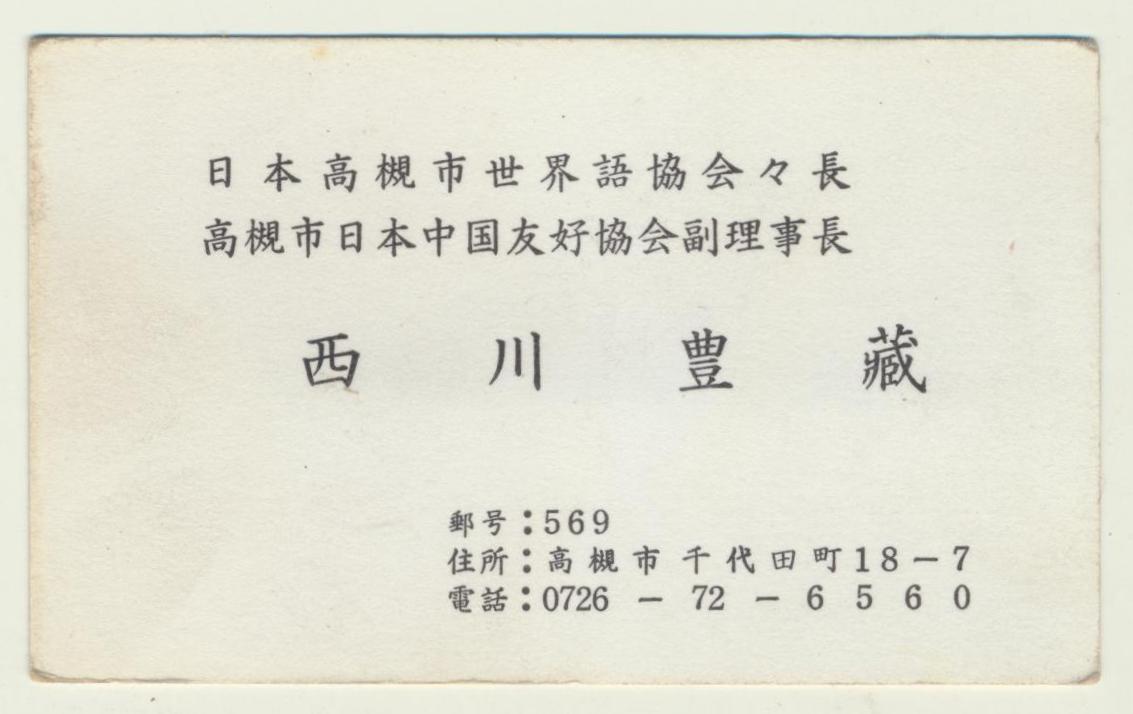 日本高槻市世界語協会々長
高槻市日本中国友好協会副理事長
西川豊藏
郵号：569
住所：高槻市千代田町18－7
電話：0726－72－6560